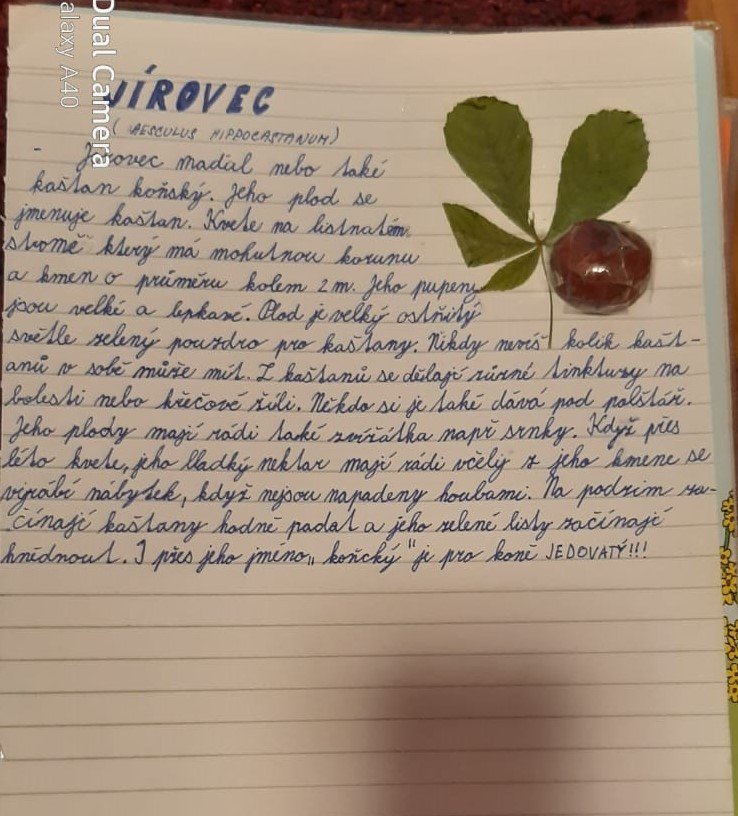 JÍROVEC
(AESCULUS HIPPOCASTANUM)
- Jírovec maďal nebo také
kaštan koňský. Jeho plod se
jmenuje kaštan. Kvete na listnatém
stromě který má mohutnou korunu
a kmen o průměru kolem 2 m. Jeho pupeny
jsou velké a lepkavé. Plod je velký ostnitý
světle zelený pouzdro pro kaštany. Nikdy nevíš kolik kašt-
anů v sobě může mít. Z kaštanů se dělají různé tinktury na
bolesti nebo křečové žíli. Někdo si je také dává pod polštář.
Jeho plody mají rádi také zvířátka např srnky. Když přes
léto kvete, jeho sladký nektar mají rádi včely z jeho kmene se
vyrábí nábytek, když nejsou napadeny houbami. Na podzim za-
čínají kaštany hodně padat a jeho zelené listy začínají
hnědnout. I přes jeho jméno „koňcký" je pro koně JEDOVATÝ!!!
Dual Camera
alaxy A40